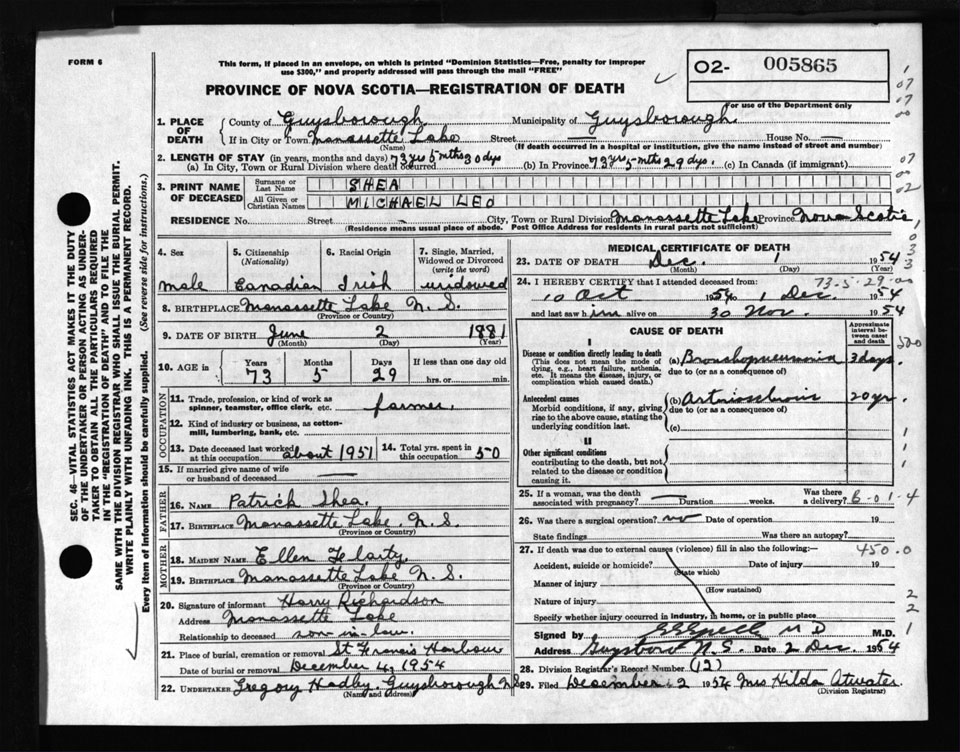 FORM 6
This form, if placed in an envelope, on which is printed "Dominion Statistics—Free, penalty for improper
use $300," and properly addressed will pass through the mail "FREE"
O2- 005865
For use of the Department only
PROVINCE OF NOVA SCOTIA—REGISTRATION OF DEATH
1. PLACE OF DEATH
County of Guysborough Municipality of Guysborough
If in City or Town Manassette Lake Street — House No. —
(Name) (If death occurred in a hospital or institution, give the name instead of street and number)
2. LENGTH OF STAY (in years, months and days) 73 yrs 5 mths 30 dys (b) In Province 73 yrs 5 mths 29 dys. (c) In Canada (if immigrant)
(a) In City, Town or Rural Division where death occurred
3. PRINT NAME OF DECEASED
Surname or Last Name SHEA
All Given or Christian Names MICHAEL LEO
RESIDENCE No. Street City, Town or Rural Division Manassette Lake Province Nova Scotia
(Residence means usual place of abode. Post Office Address for residents in rural parts not sufficient)
4. Sex
male
5. Citizenship (Nationality)
Canadian
6. Racial Origin
Irish
7. Single, Married, Widowed or Divorced (write the word)
widowed
8. BIRTHPLACE Manassette Lake N. S.
(Province or Country)
9. DATE OF BIRTH June 2 1881
(Month) (Day) (Year)
10. AGE in
Years Months Days If less than one day old
73 5 29 hrs. or min.
OCCUPATION
11. Trade, profession, or kind of work as spinner, teamster, office clerk, etc. farmer
12. Kind of industry or business, as cotton-mill, lumbering, bank, etc.
13. Date deceased last worked at this occupation about 1951
14. Total yrs. spent in this occupation 50
15. If married give name of wife or husband of deceased
FATHER
16. NAME Patrick Shea.
17. BIRTHPLACE Manassette Lake. N. S.
(Province or Country)
MOTHER
18. MAIDEN NAME Ellen Flarty
19. BIRTHPLACE Manassette Lake N. S.
(Province or Country)
20. Signature of informant Harry Richardson
Address Manassette Lake
Relationship to deceased son-in-law.
21. Place of burial, cremation or removal St Francis Harbour
Date of burial or removal December 4, 1954
22. UNDERTAKER Gregory Hadley. Guysborough N.S.
(Name and Address)
MEDICAL CERTIFICATE OF DEATH
23. DATE OF DEATH Dec. 1 1954
(Month) (Day) (Year)
24. I HEREBY CERTIFY that I attended deceased from: 73-5-29
10 Oct 1954 to 1 Dec. 1954
and last saw him alive on 30 Nov. 1954
CAUSE OF DEATH
Approximate interval between cause and death
I
Disease or condition directly leading to death
(This does not mean the mode of dying, e.g., heart failure, asthenia, etc. It means the disease, injury, or complication which caused death.)
(a) Bronchopneumonia 3 days.
due to (or as a consequence of)
Antecedent causes
Morbid conditions, if any, giving rise to the above cause, stating the underlying condition last.
(b) Arteriosclerosis 20 yr.
due to (or as a consequence of)
(c)
II
Other significant conditions
contributing to the death, but not related to the disease or condition causing it.
25. If a woman, was the death associated with pregnancy? Duration weeks. Was there a delivery? 6-01-4
26. Was there a surgical operation? no Date of operation 19
State findings Was there an autopsy?
27. If death was due to external causes (violence) fill in also the following:— 450.0
Accident, suicide or homicide? Date of injury 19
(State which)
Manner of injury
(How sustained)
Nature of injury
Specify whether injury occurred in industry, in home, or in public place
Signed by M D M.D.
Address Guysboro N. S. Date 2 Dec 1954
28. Division Registrar's Record Number (12)
29. Filed December 2 1954 Mrs Hilda Atwater
(Division Registrar)
SEC. 46—VITAL STATISTICS ACT MAKES IT THE DUTY
OF THE UNDERTAKER OR PERSON ACTING AS UNDER-
TAKER TO OBTAIN ALL THE PARTICULARS REQUIRED
IN THE "REGISTRATION OF DEATH" AND TO FILE THE
SAME WITH THE DIVISION REGISTRAR WHO SHALL ISSUE THE BURIAL PERMIT.
WRITE PLAINLY WITH UNFADING INK. THIS IS A PERMANENT RECORD.
Every item of Information should be carefully supplied. (See reverse side for instructions.)